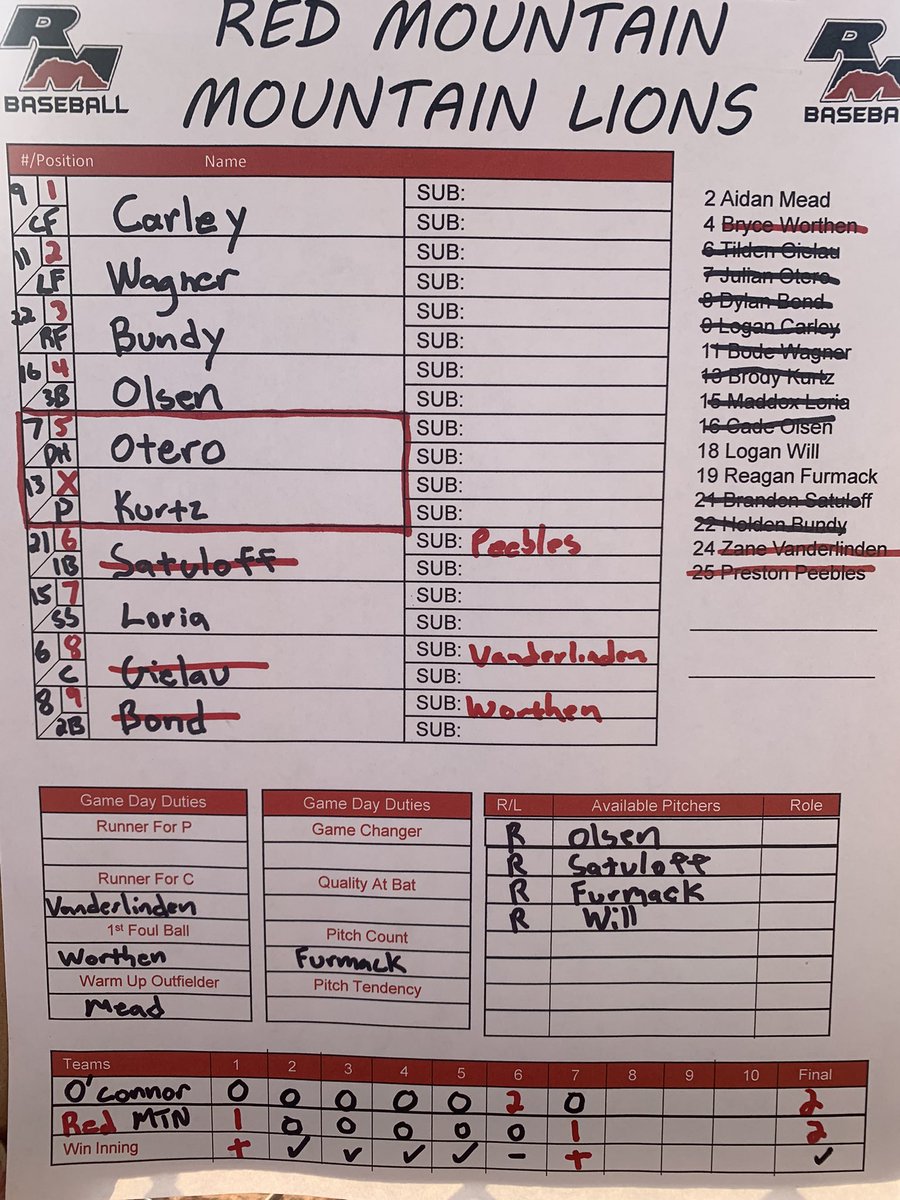 RM BASEBALL
RED MOUNTAIN
MOUNTAIN LIONS
RM BASEBA
#/Position Name
9 1 CF Carley SUB:
SUB:
11 2 LF Wagner SUB:
SUB:
22 3 RF Bundy SUB:
SUB:
16 4 3B Olsen SUB:
SUB:
7 5 DH Otero SUB:
SUB:
13 X P Kurtz SUB:
SUB:
21 6 1B Satuloff SUB: Peebles
SUB:
15 7 SS Loria SUB:
SUB:
6 8 C Gielau SUB: Vanderlinden
SUB:
8 9 2B Bond SUB: Worthen
SUB:
2 Aidan Mead
4 Bryce Worthen
6 Tilden Gielau
7 Julian Otero
8 Dylan Bond
9 Logan Carley
11 Bode Wagner
13 Brody Kurtz
15 Maddox Loria
16 Cade Olsen
18 Logan Will
19 Reagan Furmack
21 Branden Satuloff
22 Holden Bundy
24 Zane Vanderlinden
25 Preston Peebles
Game Day Duties
Runner For P
Runner For C
Vanderlinden
1st Foul Ball
Worthen
Warm Up Outfielder
Mead
Game Day Duties
Game Changer
Quality At Bat
Pitch Count
Furmack
Pitch Tendency
R/L Available Pitchers Role
R Olsen
R Satuloff
R Furmack
R Will
Teams 1 2 3 4 5 6 7 8 9 10 Final
O'Connor 0 0 0 0 0 2 0 2
Red MTN 1 0 0 0 0 0 1 2
Win Inning + ✓ ✓ ✓ ✓ - + ✓